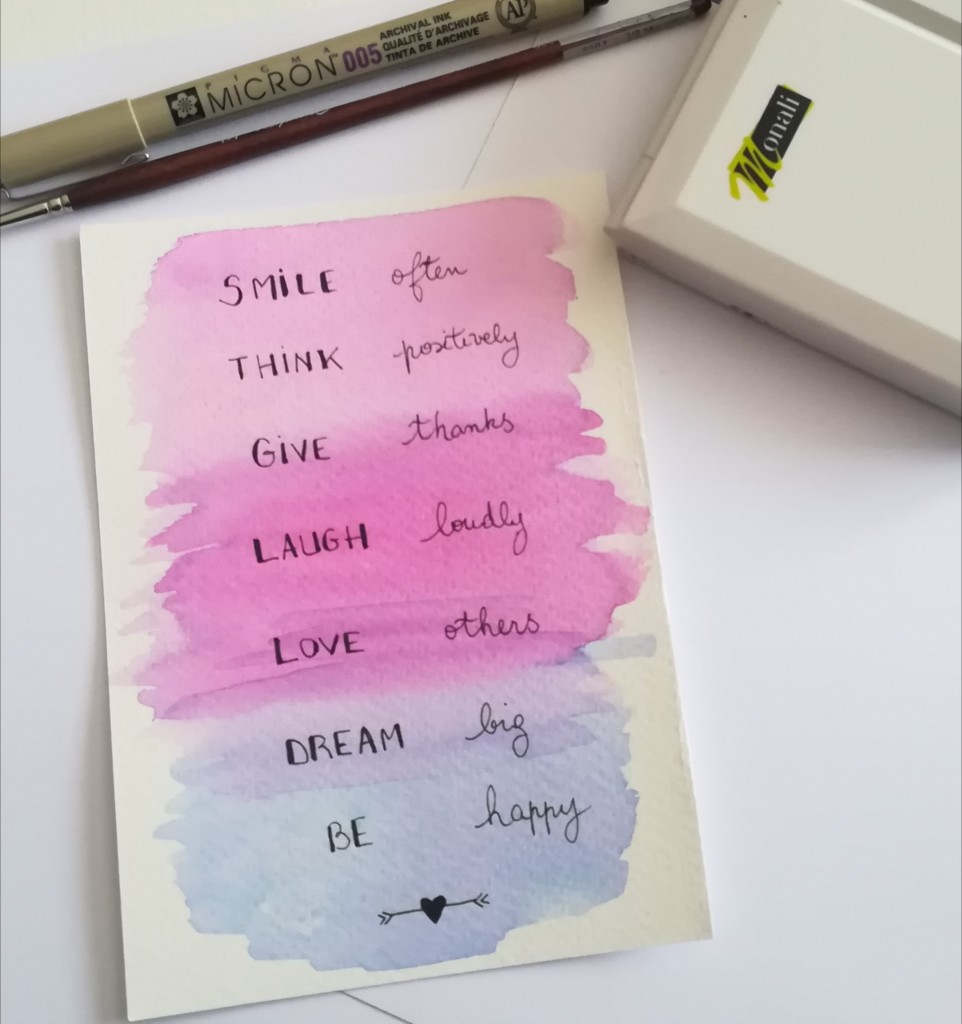 PIGMA
MICRON™ 005 ARCHIVAL INK
QUALITÉ D'ARCHIVAGE
TINTA DE ARCHIVE
AP
Monali
SMiLE often
THiNK positively
GiVE thanks
LAUGH loudly
LOVE others
DREAM big
BE happy